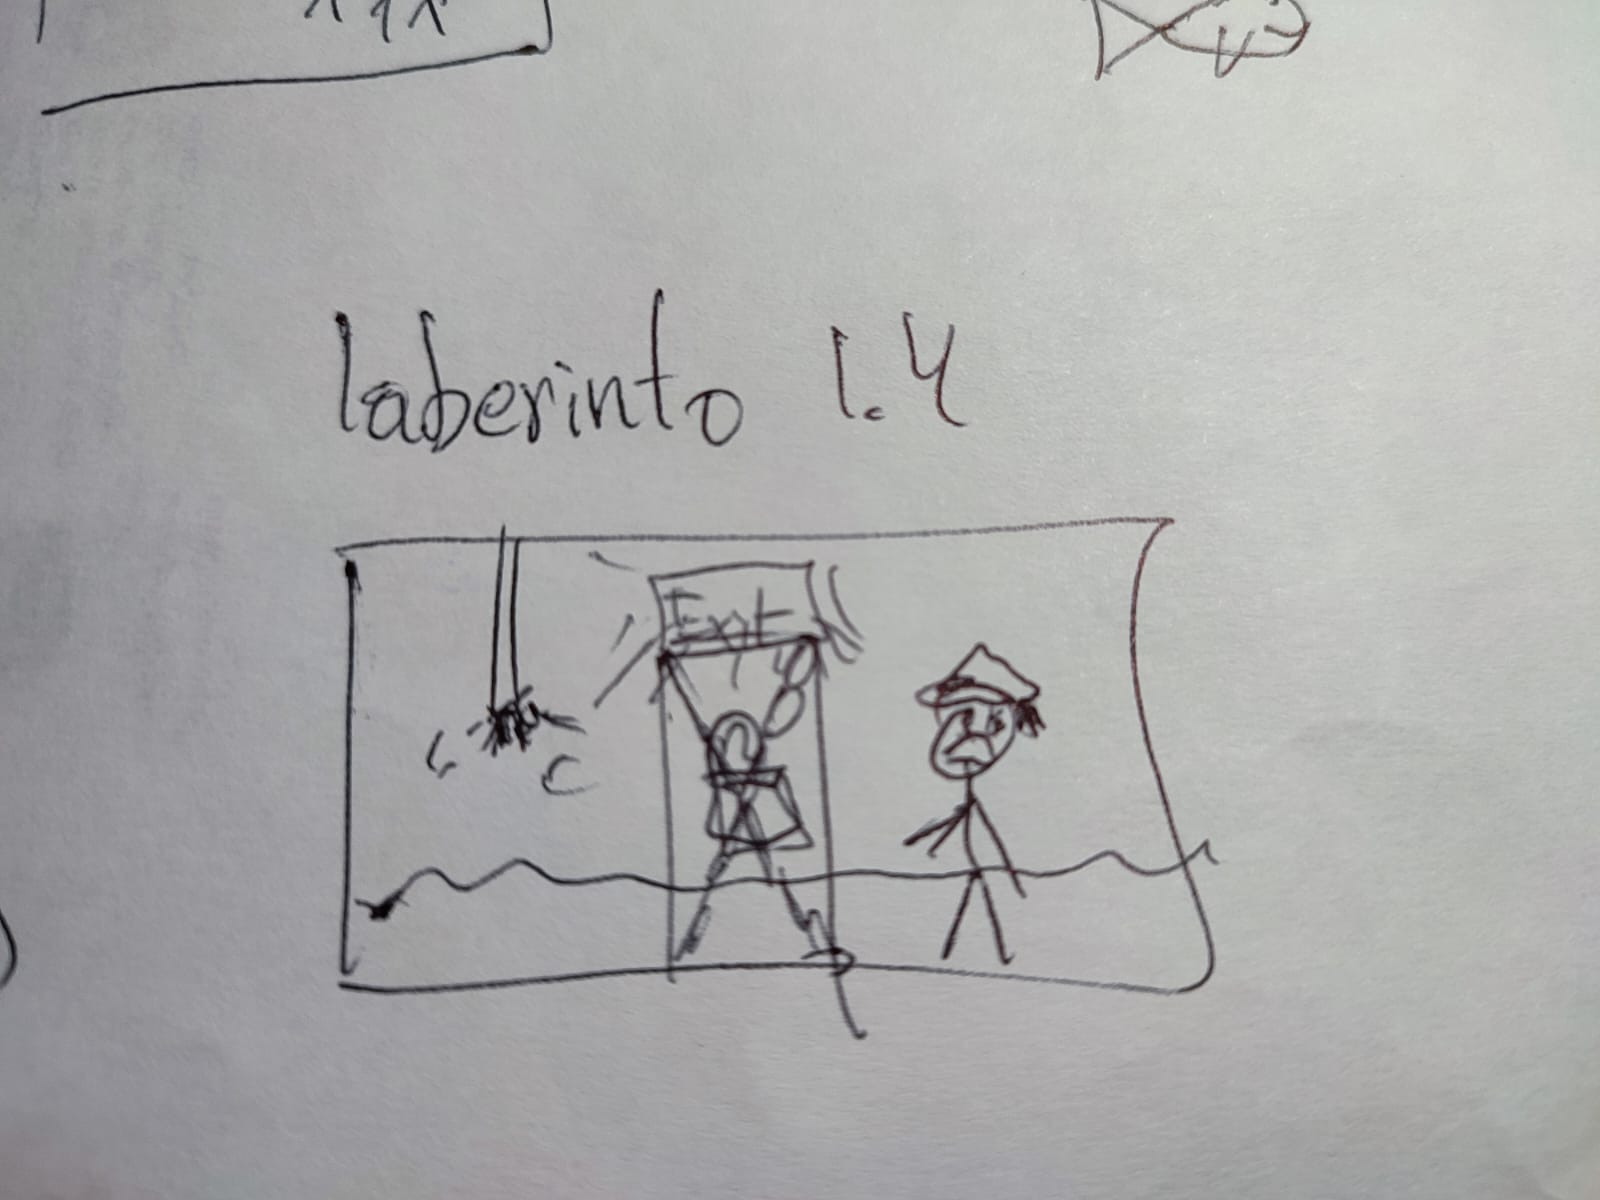 laberinto 1.4
Exit